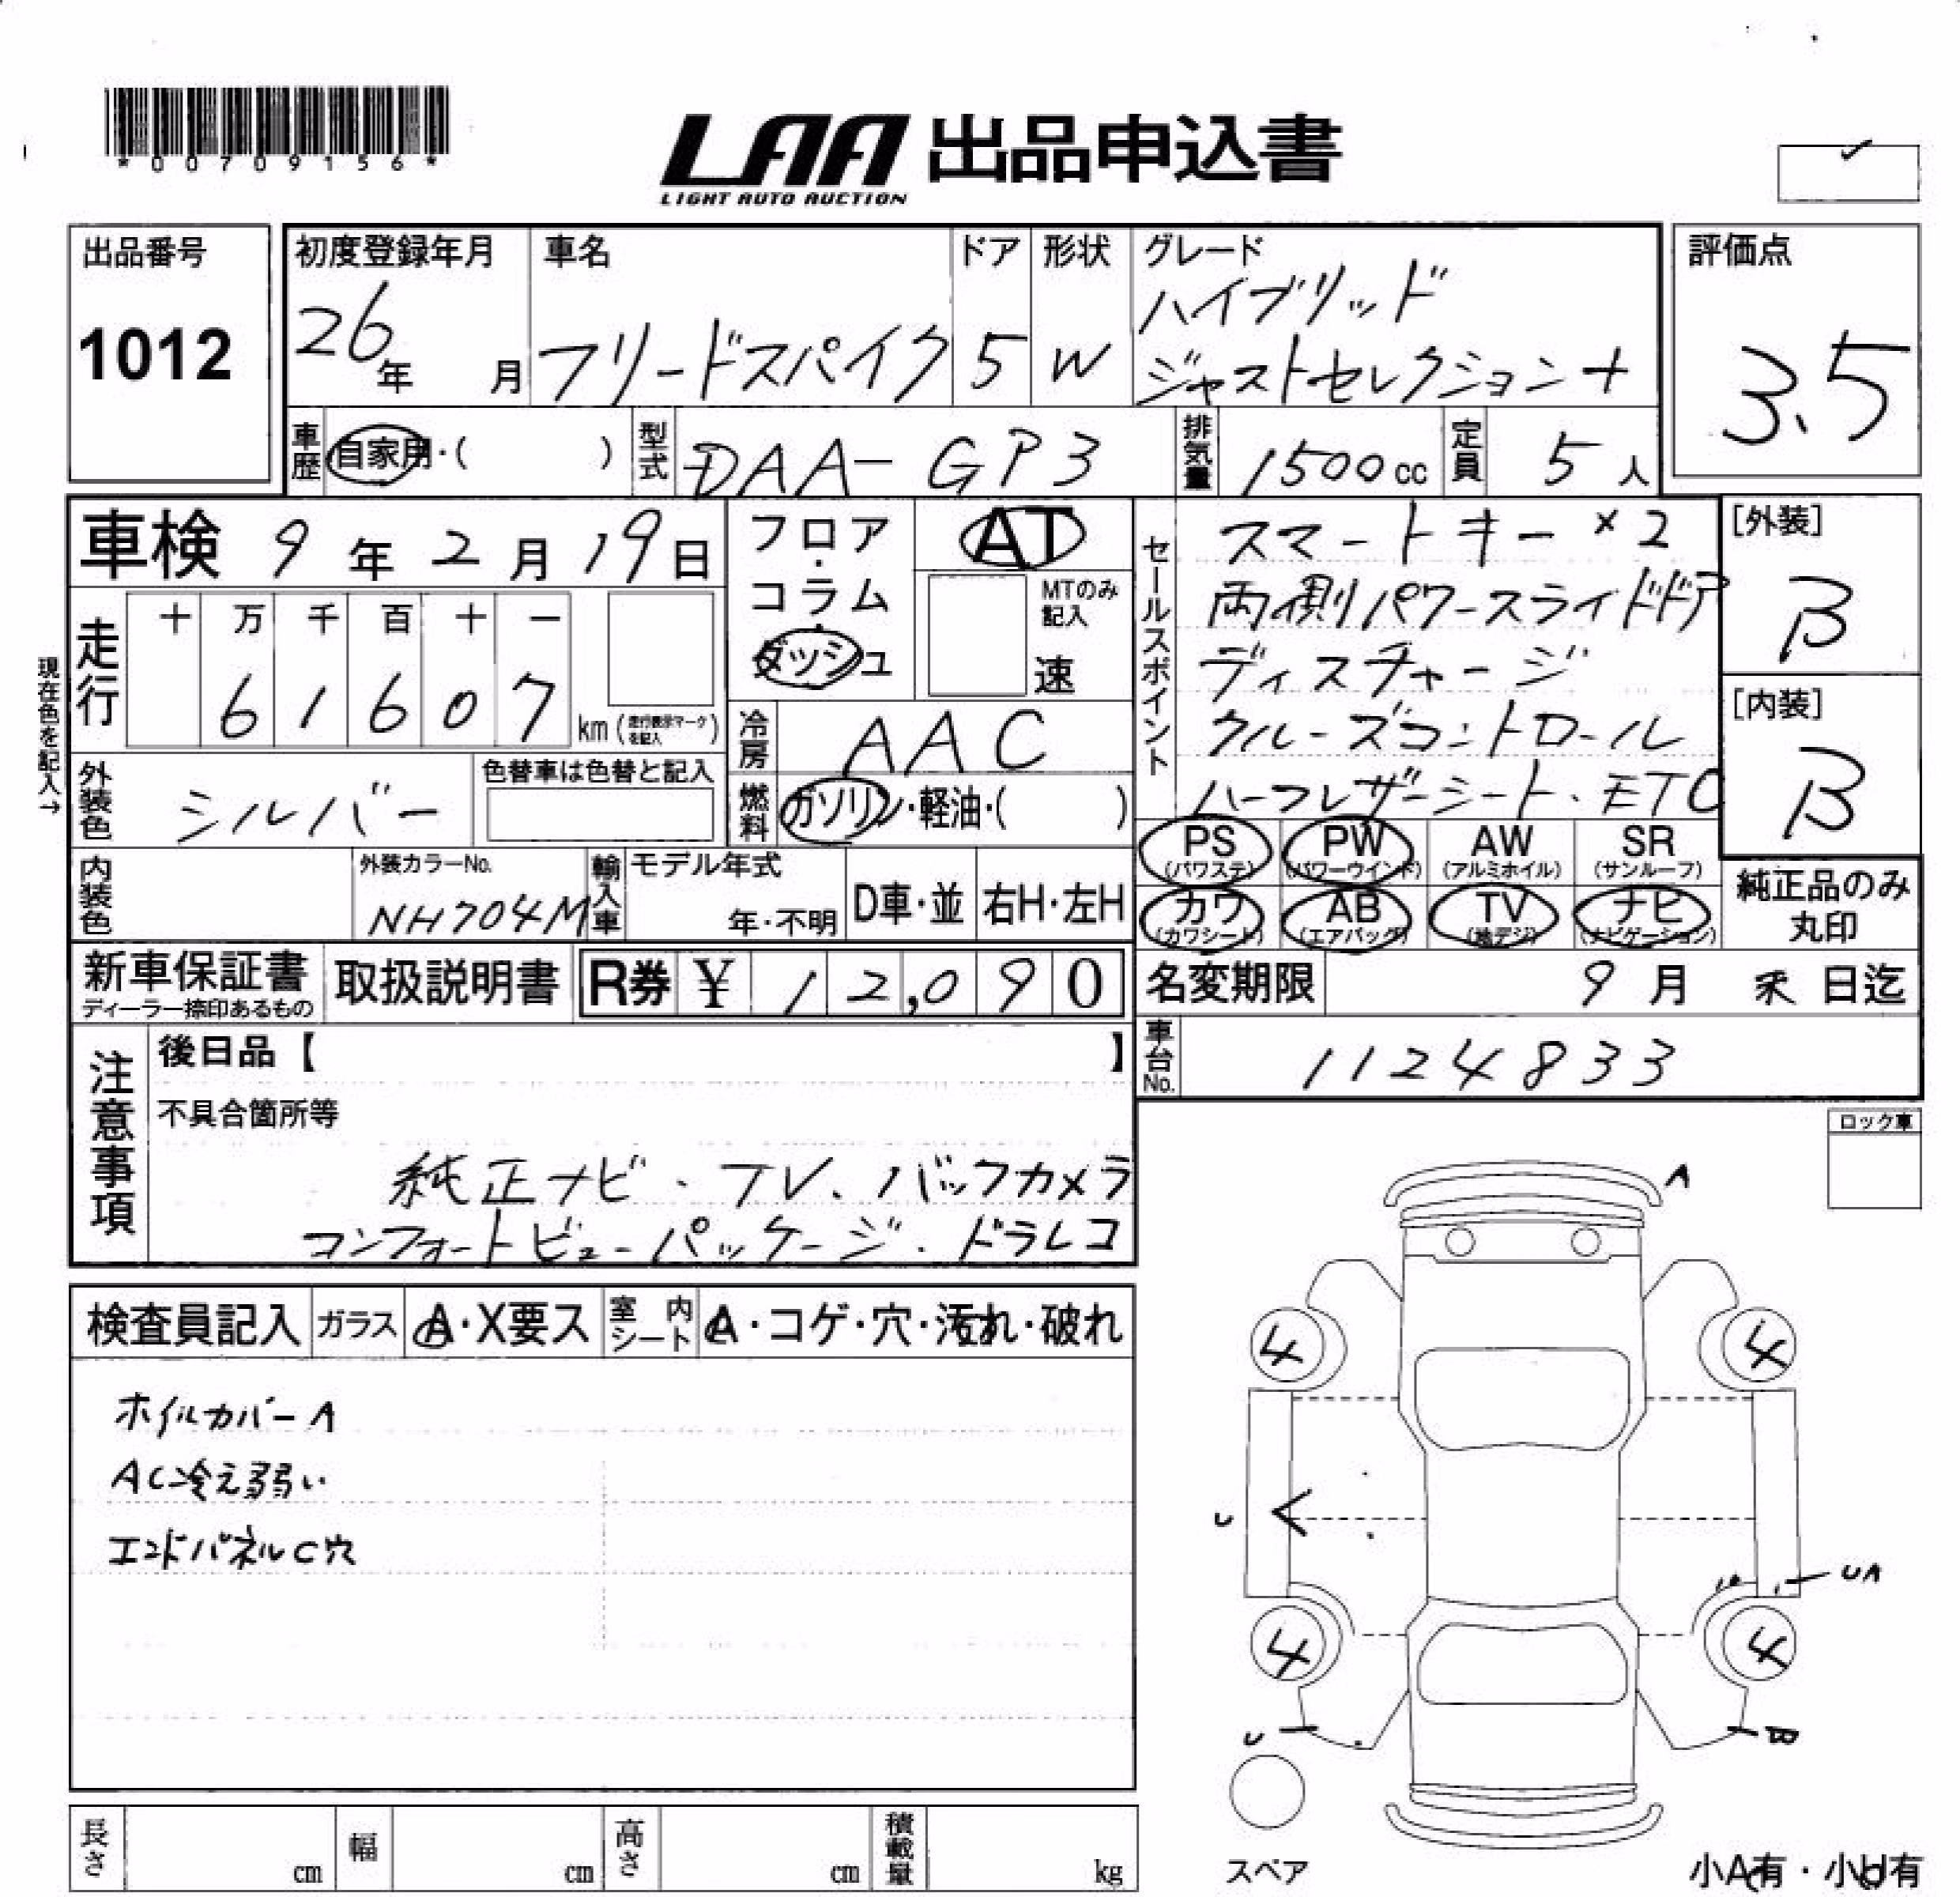 *00709156*
LAA 出品申込書
LIGHT AUTO AUCTION
出品番号
1012
初度登録年月
26年 月
車名
フリードスパイク
ドア
5
形状
W
グレード
ハイブリッド
ジャストセレクション+
評価点
3.5
車歴 自家用・( )
型式 DAA-GP3
排気量 1500cc
定員 5人
車検 9年2月19日
フロア・コラム・ダッシュ
AT
MTのみ記入
速
現在色を記入→
走行 十 万 千 百 十 一
61607 km(走行表示マークを記入)
冷房 AAC
外装色 シルバー
色替車は色替と記入
燃料 ガソリン・軽油・( )
内装色
外装カラーNo.
NH704M
輸入車 モデル年式
年・不明
D車・並
右H・左H
セールスポイント
スマートキー×2
両側パワースライドドア
ディスチャージ
クルーズコントロール
ハーフレザーシート、ETC
[外装]
B
[内装]
B
PS (パワステ)
PW (パワーウインド)
AW (アルミホイル)
SR (サンルーフ)
カワ (カワシート)
AB (エアバッグ)
TV (地デジ)
ナビ (ナビゲーション)
純正品のみ丸印
新車保証書
ディーラー捺印あるもの
取扱説明書
R券 ¥ 12,090
名変期限 9月 末 日迄
車台No. 1124833
注意事項
後日品【 】
不具合箇所等
純正ナビ・TV、バックカメラ
コンフォートビューパッケージ・ドラレコ
ロック車
検査員記入 ガラス A・X要ス 室内シート A・コゲ・穴・汚れ・破れ
ホイルカバーA
AC冷え弱い
エンドパネルC穴
A
4
4
U
UA
4
4
U
B
スペア
小A有・小U有
長さ cm 幅 cm 高さ cm 積載量 kg